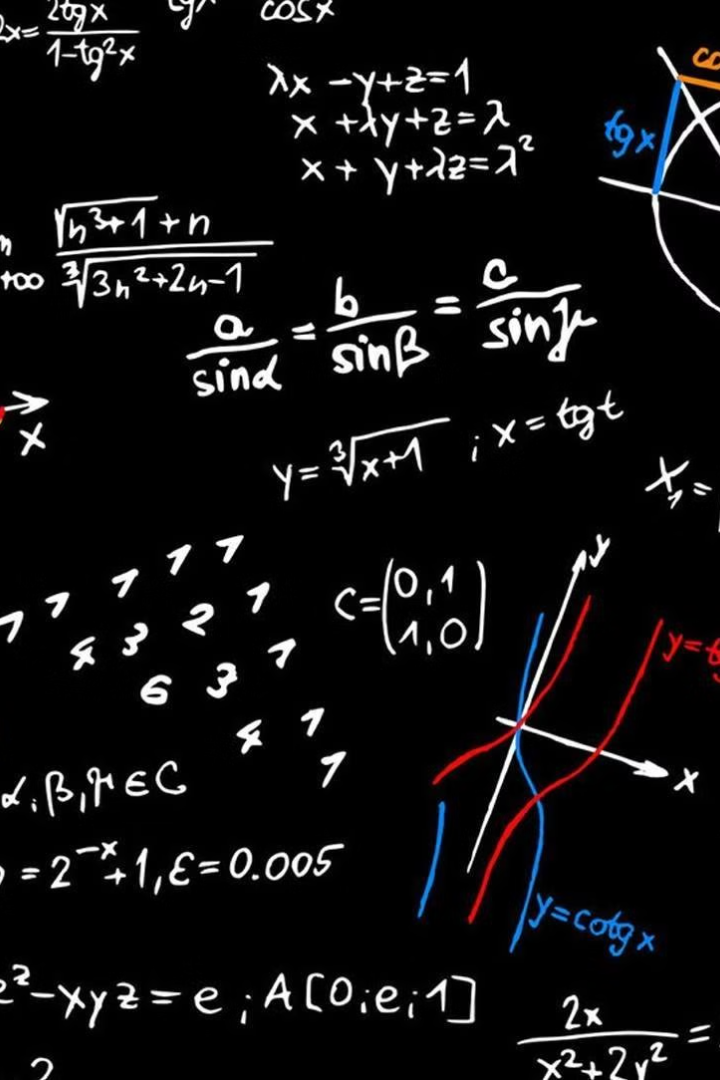 2x = 2tgx / 1-tg²x
cosx
λx - y + z = 1
x + λy + z = λ
x + y + λz = λ²
tgx
√(n³+1) + n / ∛(3n²+2n-1)
+∞
a/sinα = b/sinβ = c/sinγ
x
y = ∛(x+1) ; x = tgt
x₁ =
1 1 1 1 1
4 3 2 1
6 3 1
4 1
1
C = (0,1
1,0)
y
y = tg
x
α, β, γ ∈ C
= 2⁻ˣ + 1, ε = 0.005
y = cotgx
z² - xyz = e ; A[0;e;1]
2x / x²+2y² =
2